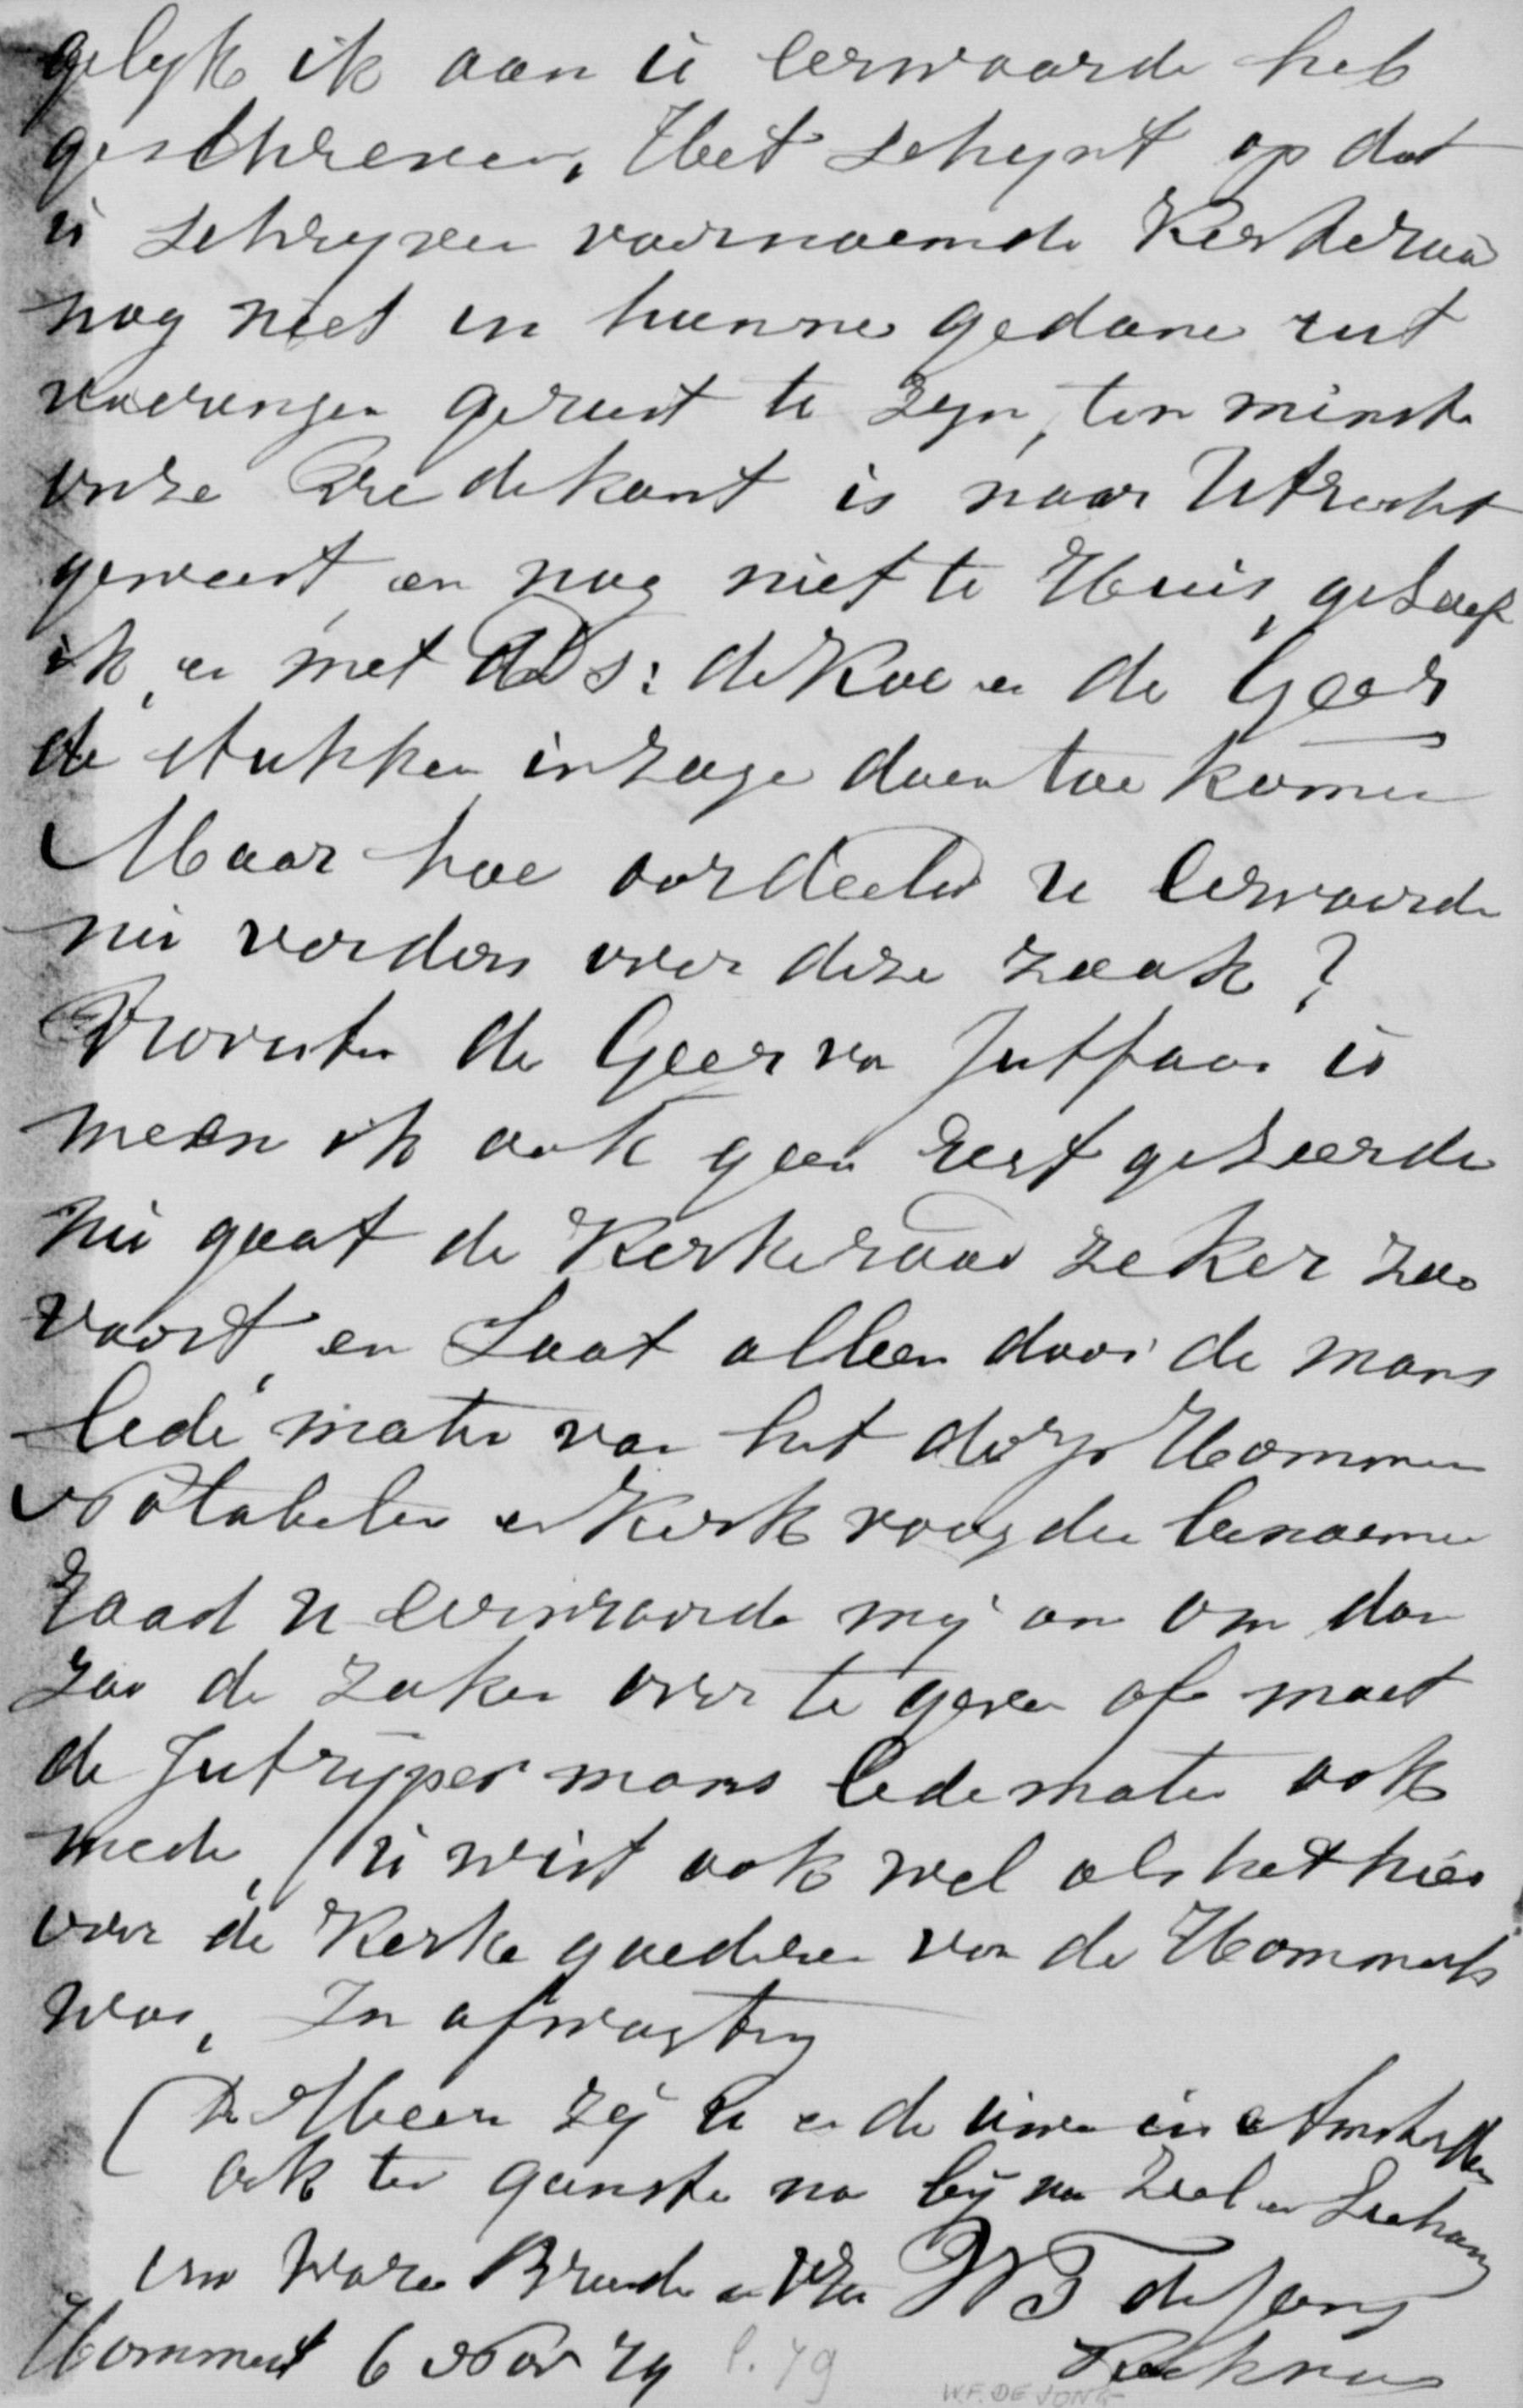 gelyk ik aan u eerwaarde heb
geschreven, Het schynt op dat
u schryven voornoemde Kerkeraad
nog niet in hunne gedane uit
voeringen gerust te zyn, ten minste
onze Predekant is naar Utrecht
geweest, en nog niet te Huis, geloof
ik, en met Ds: de Koe en de Geer
de stukken inzage doen toe komen
Maar hoe oordeeld u eerwaarde
nu verders over deze zaak?
de Geer van Jutfaas is
meen ik ook geen rest geleerde
nu gaat de Kerkeraad zeker zoo
voort, en Laat alleen door de mans
lede maten van het dorp Hommer
Notabelen en Kerk voogden benoemen
raad u eerwaarde my an om dan
zoo de zaken over te geven of moet
de Jutryper mans ledematen ook
mede, (u wist ook wel als het hier
over de Kerke goederen van de Hommerts
was, In afwagting
(De Heere zij u en de uwe in Amsterdam
ook ten gunste na bij na Ziel en Lichaam
uw ware Broeder en Vr W F de Jong
Hommert 6 Nov 79 l. 79
W.F. DE JONG